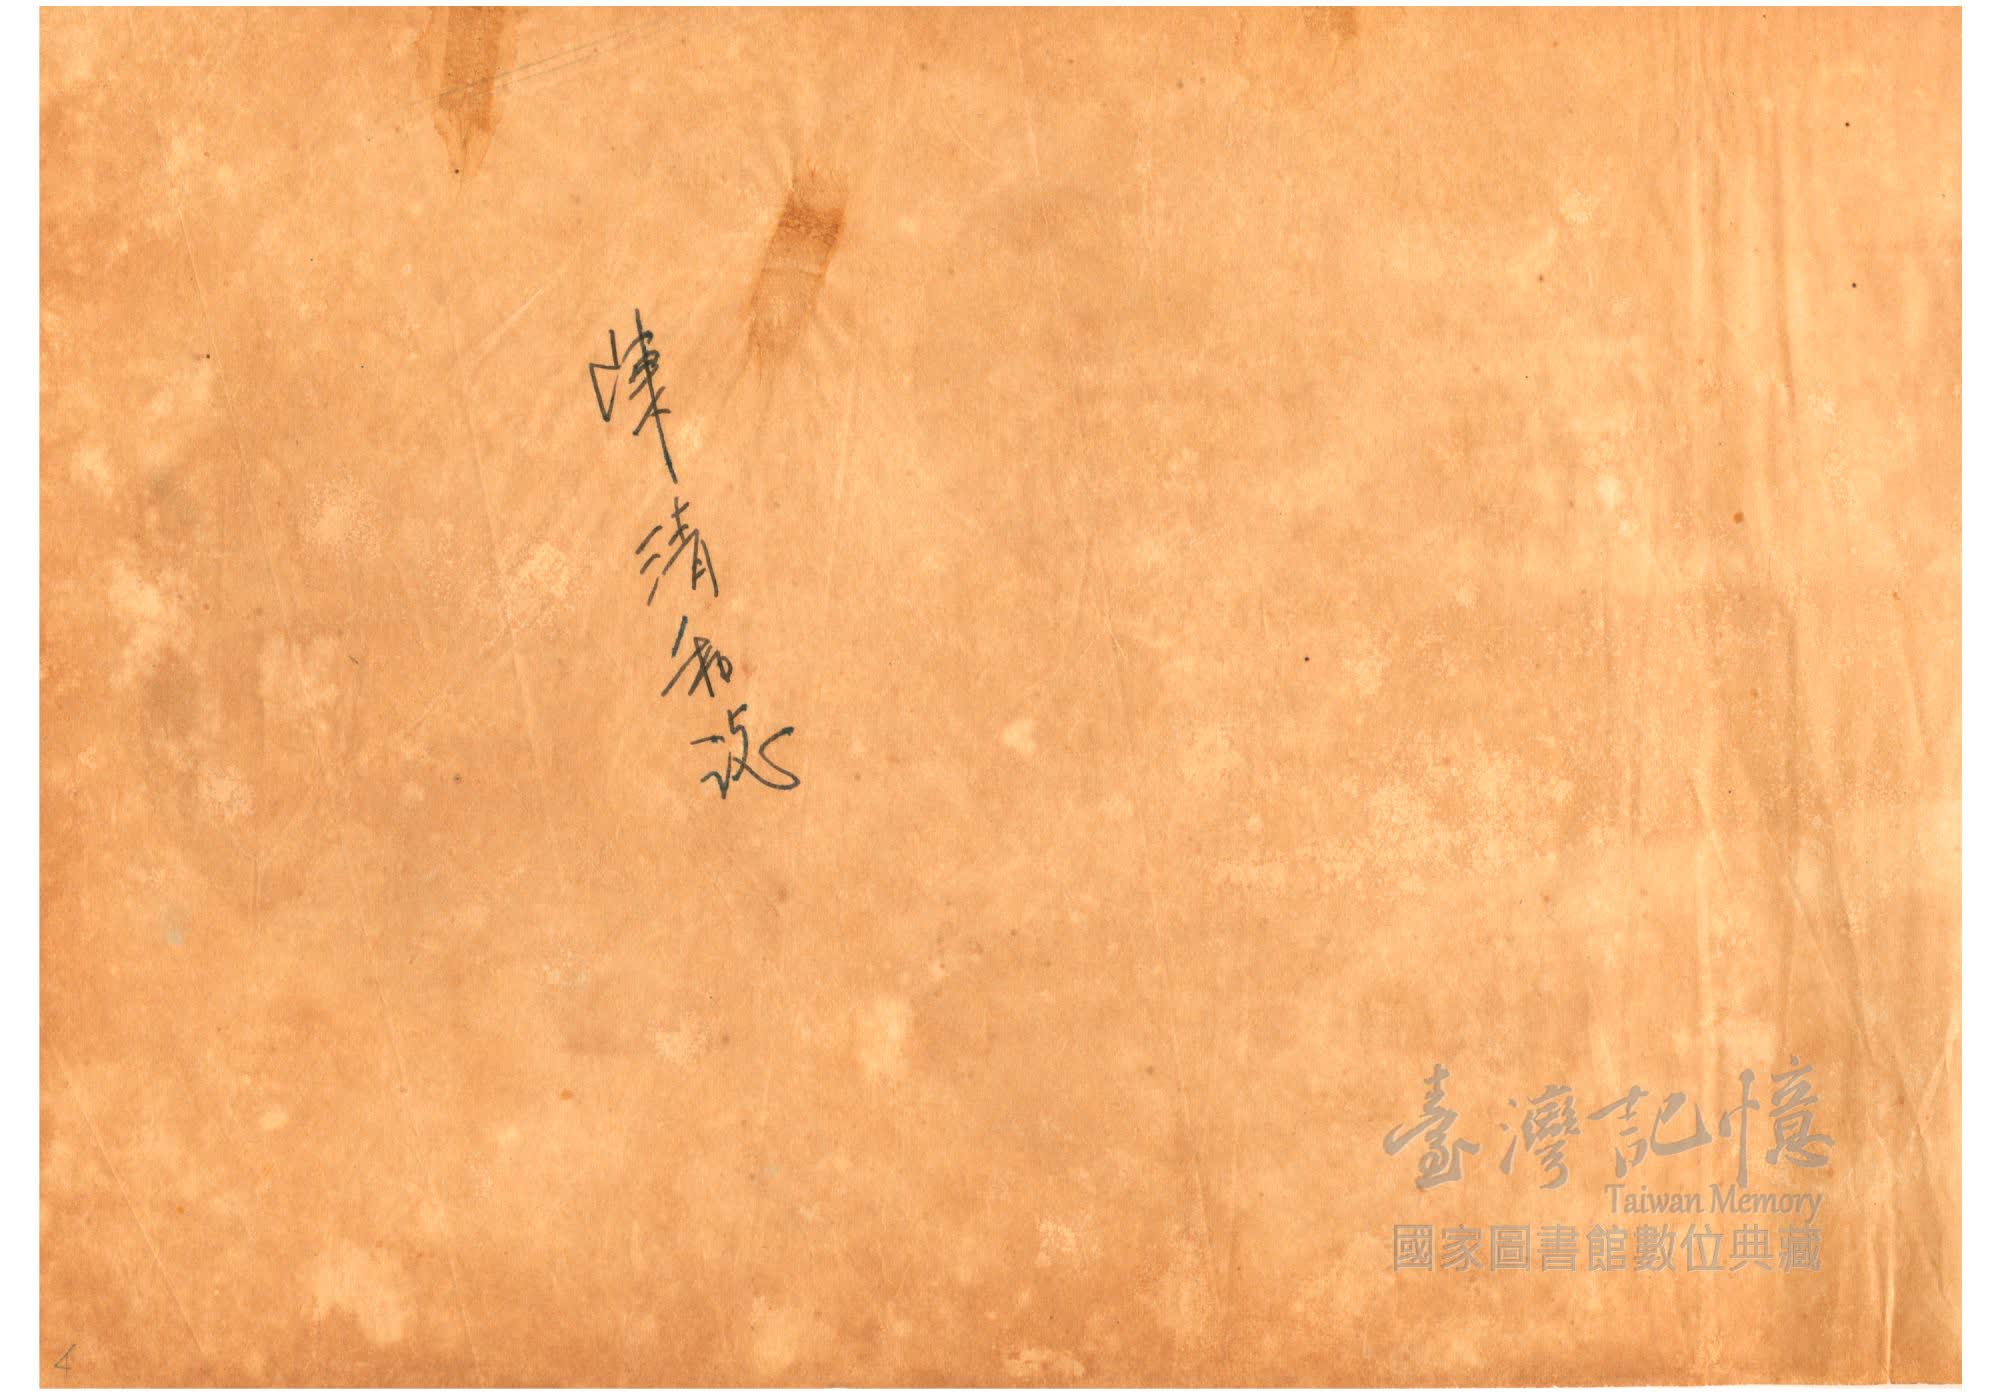 陳清和
臺灣記憶
Taiwan Memory
國家圖書館數位典藏
4